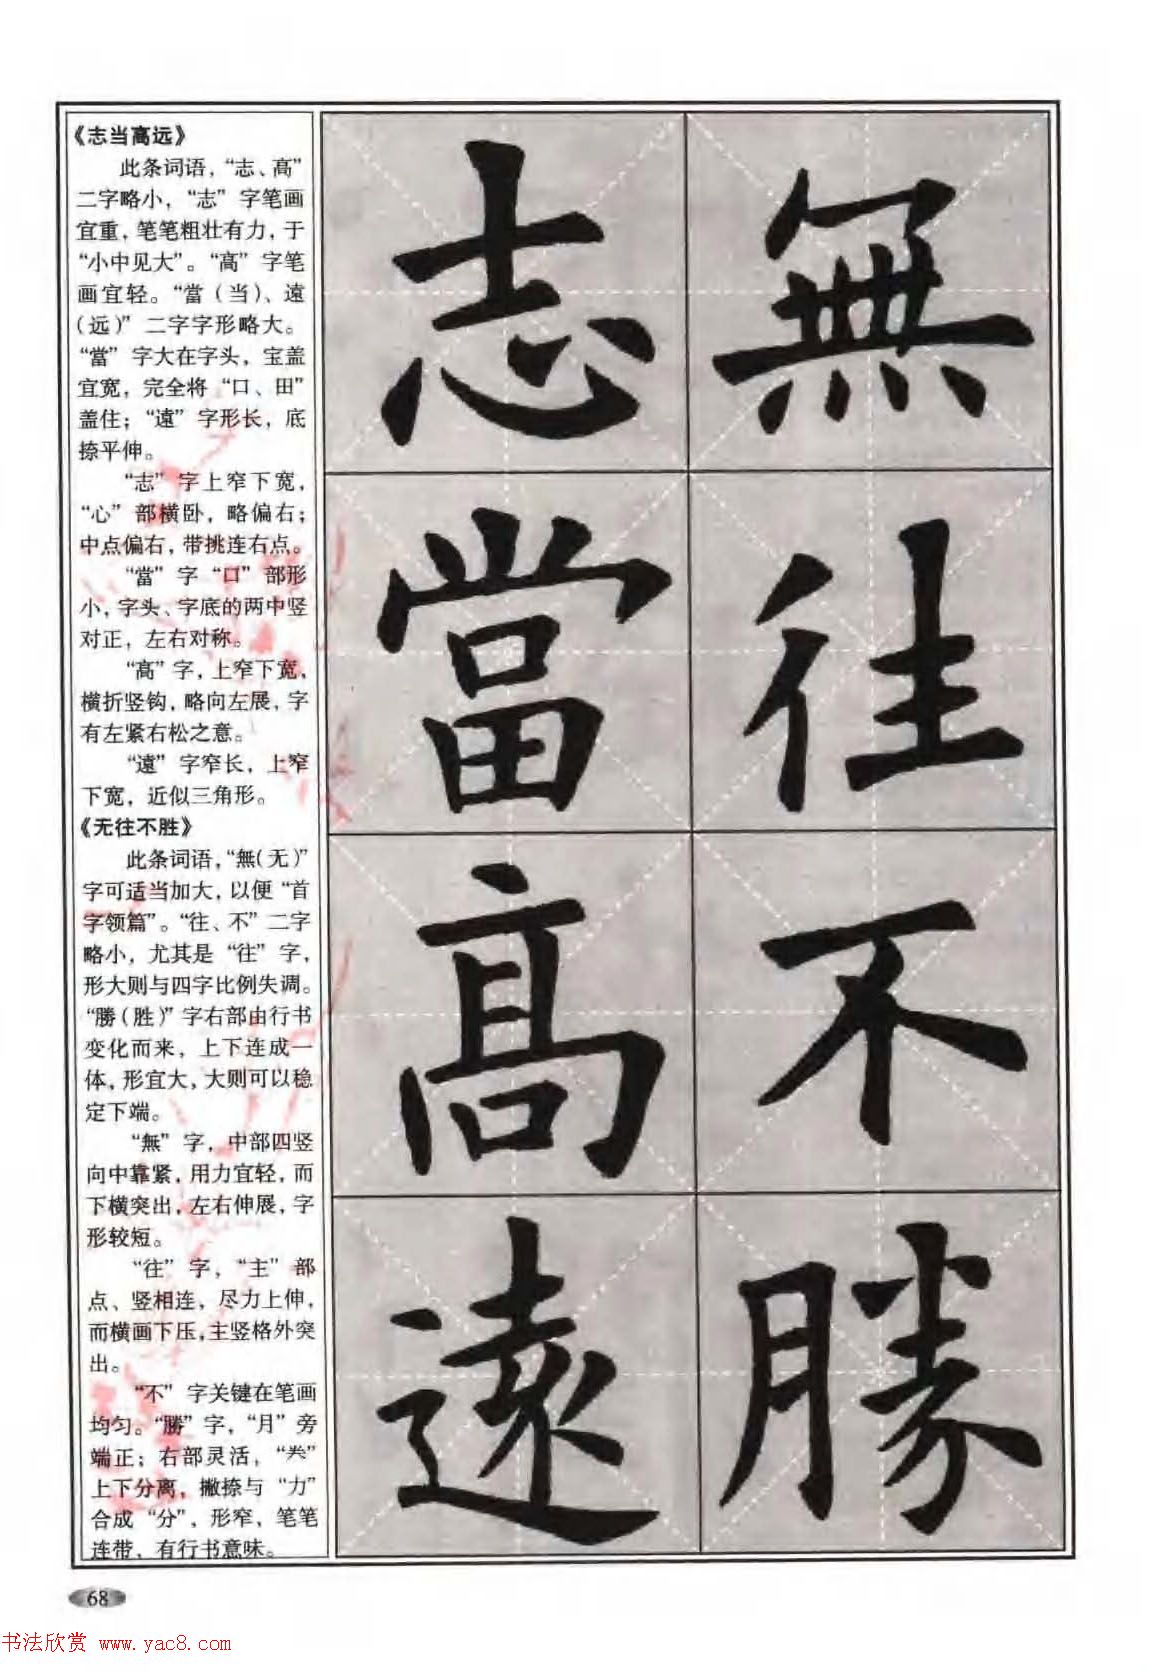 《志当高远》
此条词语，“志、高”
二字略小，“志”字笔画
宜重，笔笔粗壮有力，于
“小中见大”。“高”字笔
画宜轻。“當（当）、遠
（远）”二字字形略大。
“當”字大在字头，宝盖
宜宽，完全将“口、田”
盖住；“遠”字形长，底
捺平伸。
“志”字上窄下宽，
“心”部横卧，略偏右；
中点偏右，带挑连右点。
“當”字“口”部形
小，字头、字底的两中竖
对正，左右对称。
“高”字，上窄下宽，
横折竖钩，略向左展，字
有左紧右松之意。
“遠”字窄长，上窄
下宽，近似三角形。
《无往不胜》
此条词语，“無（无）”
字可适当加大，以便“首
字领篇”。“往、不”二字
略小，尤其是“往”字，
形大则与四字比例失调。
“勝（胜）”字右部由行书
变化而来，上下连成一
体，形宜大，大则可以稳
定下端。
“無”字，中部四竖
向中靠紧，用力宜轻，而
下横突出，左右伸展，字
形较短。
“往”字，“主”部
点、竖相连，尽力上伸，
而横画下压，主竖格外突
出。
“不”字关键在笔画
均匀。“勝”字，“月”旁
端正；右部灵活，“龹”
上下分离，撇捺与“力”
合成“分”，形窄，笔笔
连带，有行书意味。
志
當
高
遠
無
往
不
勝
68
书法欣赏 www.yac8.com